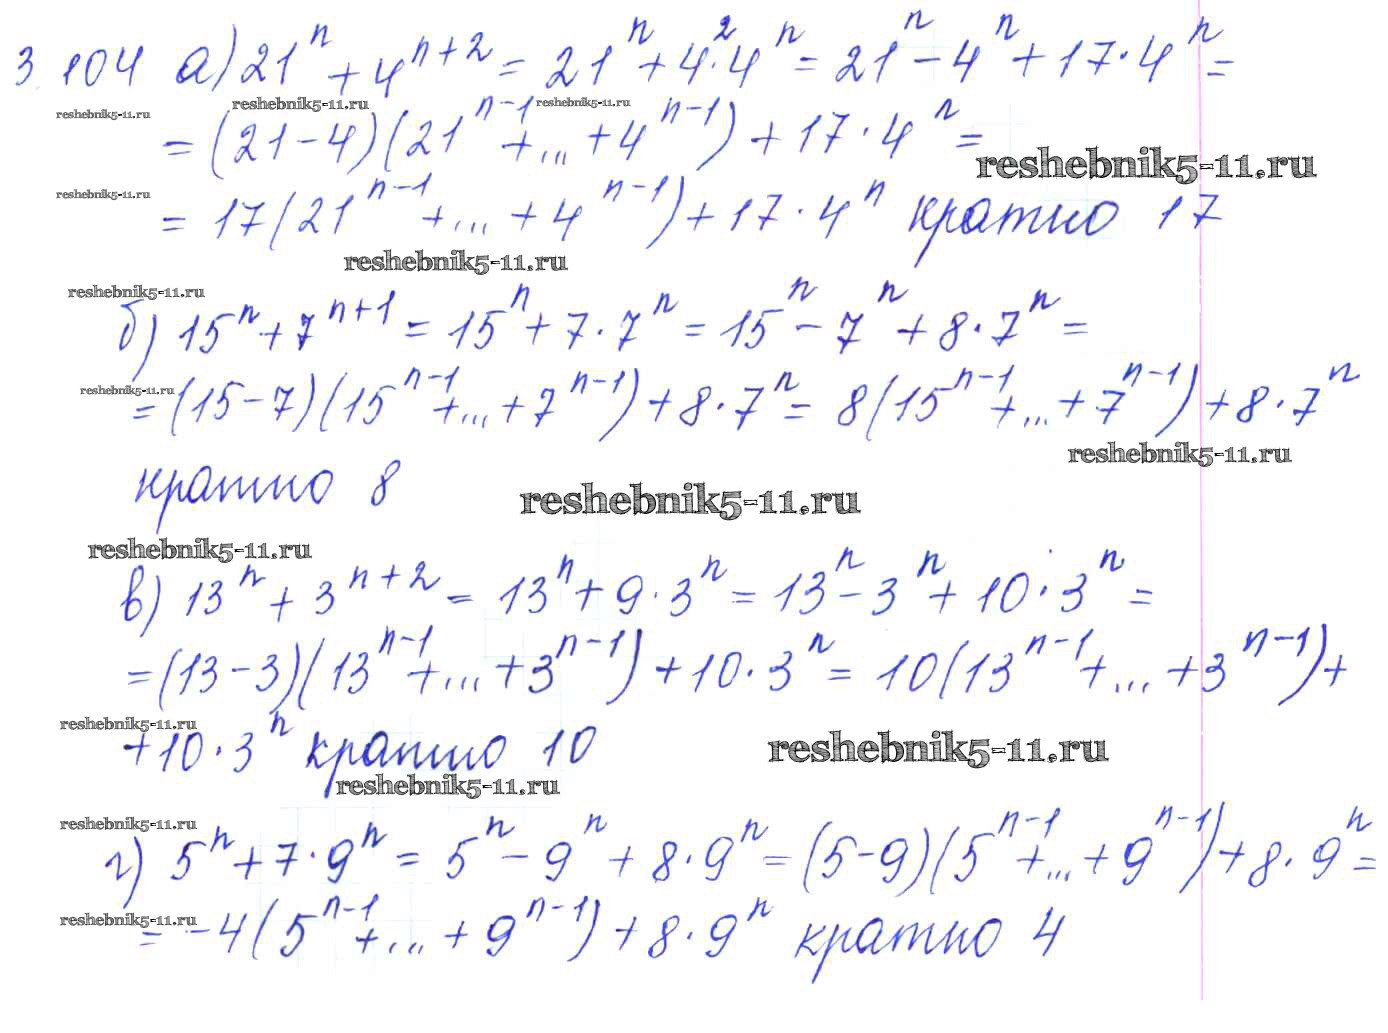 3.104 а) 21ⁿ + 4ⁿ⁺² = 21ⁿ + 4²·4ⁿ = 21ⁿ - 4ⁿ + 17·4ⁿ =
reshebnik5-11.ru reshebnik5-11.ru reshebnik5-11.ru
= (21-4)(21ⁿ⁻¹ + ... + 4ⁿ⁻¹) + 17·4ⁿ =
reshebnik5-11.ru
reshebnik5-11.ru
= 17(21ⁿ⁻¹ + ... + 4ⁿ⁻¹) + 17·4ⁿ кратно 17
reshebnik5-11.ru
reshebnik5-11.ru
б) 15ⁿ + 7ⁿ⁺¹ = 15ⁿ + 7·7ⁿ = 15ⁿ - 7ⁿ + 8·7ⁿ =
reshebnik5-11.ru
= (15-7)(15ⁿ⁻¹ + ... + 7ⁿ⁻¹) + 8·7ⁿ = 8(15ⁿ⁻¹ + ... + 7ⁿ⁻¹) + 8·7ⁿ
reshebnik5-11.ru
кратно 8
reshebnik5-11.ru
reshebnik5-11.ru
в) 13ⁿ + 3ⁿ⁺² = 13ⁿ + 9·3ⁿ = 13ⁿ - 3ⁿ + 10·3ⁿ =
= (13-3)(13ⁿ⁻¹ + ... + 3ⁿ⁻¹) + 10·3ⁿ = 10(13ⁿ⁻¹ + ... + 3ⁿ⁻¹) +
reshebnik5-11.ru
+ 10·3ⁿ кратно 10
reshebnik5-11.ru
reshebnik5-11.ru
reshebnik5-11.ru
г) 5ⁿ + 7·9ⁿ = 5ⁿ - 9ⁿ + 8·9ⁿ = (5-9)(5ⁿ⁻¹ + ... + 9ⁿ⁻¹) + 8·9ⁿ =
reshebnik5-11.ru
= -4(5ⁿ⁻¹ + ... + 9ⁿ⁻¹) + 8·9ⁿ кратно 4